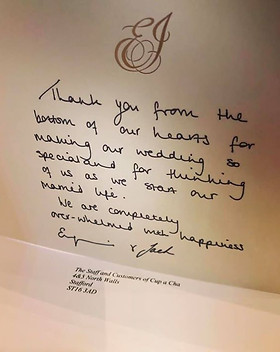 EJ
Thank you from the
bottom of our hearts for
making our wedding so
special and for thinking
of us as we start our
married life.
We are completely
over-whelmed with happiness
x Jack
The Staff and Customers of Cup a Cha
4&5 North Walls
Stafford
ST16 3AD